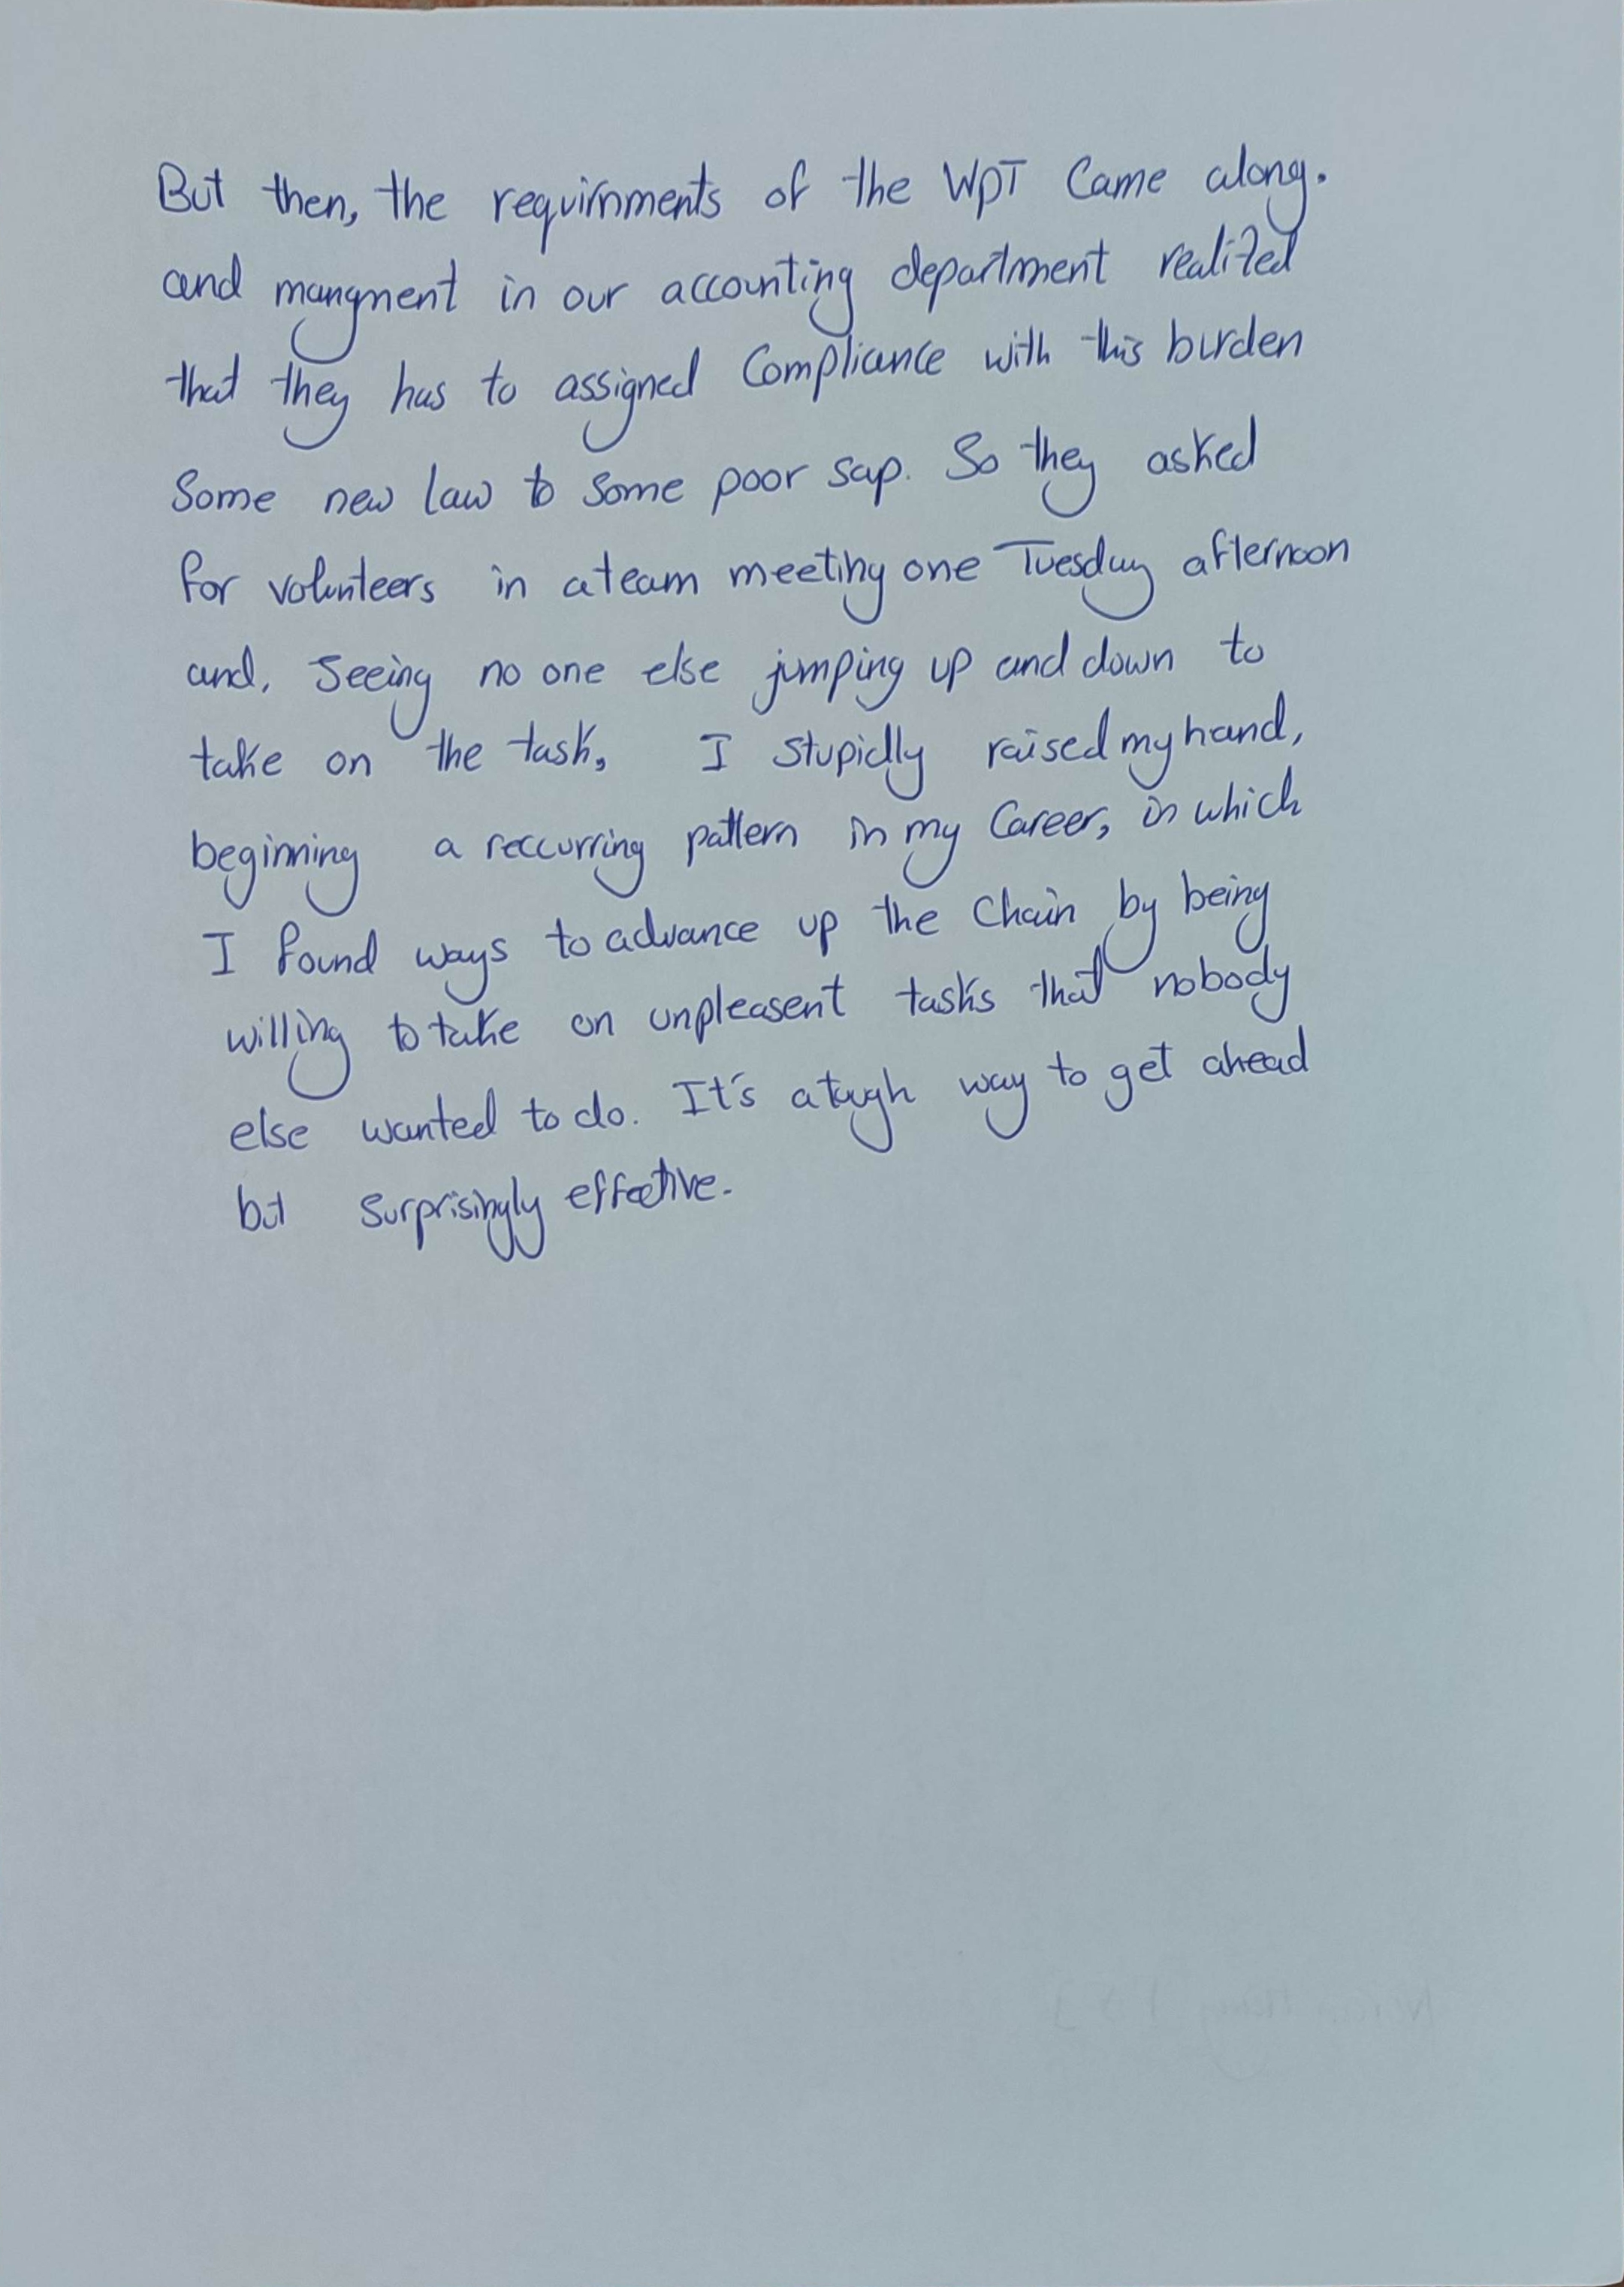 But then, the requirnments of the WPT Came along.
and mangment in our accounting department realized
that they has to assigned Compliance with this burden
Some new law to some poor sap. So they asked
for volunteers in a team meeting one Tuesday afternoon
and, Seeing no one else jumping up and down to
take on the task, I stupidly raised my hand,
beginning a reccurring pattern in my Career, in which
I found ways to advance up the Chain by being
willing to take on unpleasent tasks that nobody
else wanted to do. It's a tough way to get ahead
but surprisingly effective.